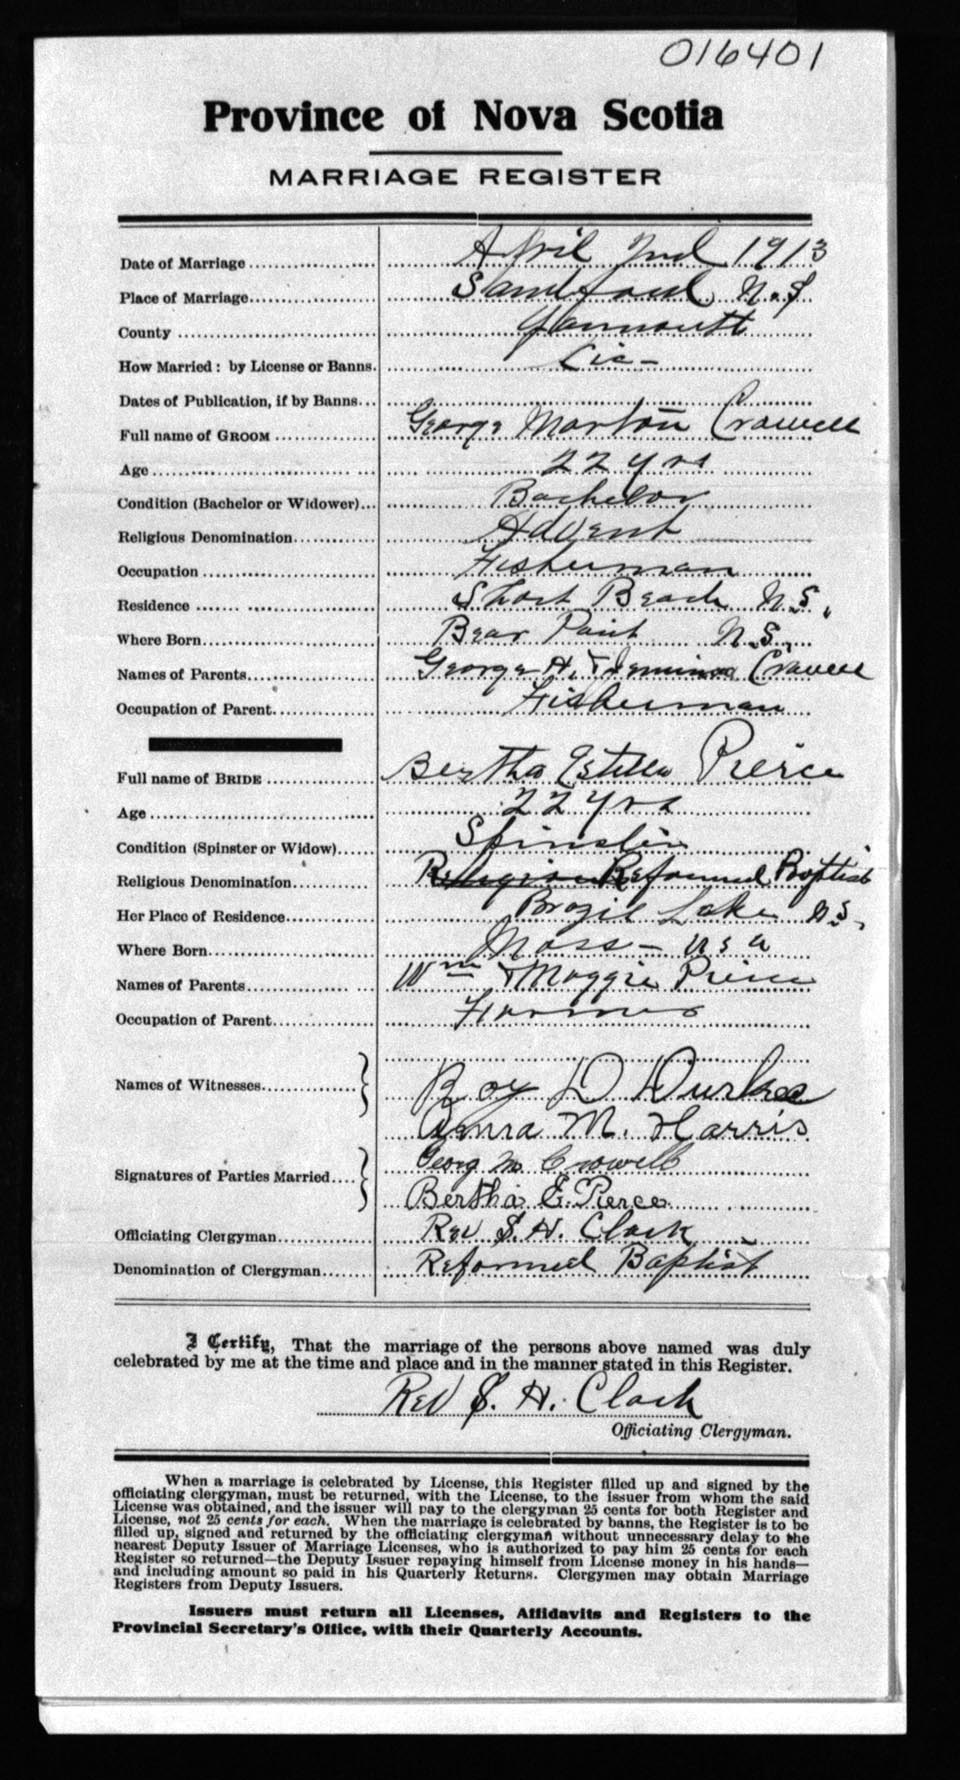 016401
Province of Nova Scotia
MARRIAGE REGISTER
Date of Marriage April 2nd 1913
Place of Marriage Sandford N.S
County Yarmouth
How Married: by License or Banns. Lic-
Dates of Publication, if by Banns
Full name of GROOM George Morton Crowell
Age 22 yrs
Condition (Bachelor or Widower) Bachelor
Religious Denomination Advent
Occupation Fisherman
Residence Short Beach N.S.
Where Born Bear Point N.S.
Names of Parents George H. & Crowell
Occupation of Parent Fisherman
Full name of BRIDE Bertha Estella Pierce
Age 22 yrs
Condition (Spinster or Widow) Spinster
Religious Denomination Religion Reformed Baptist
Her Place of Residence Brazil Lake N.S.
Where Born Mass - U S A
Names of Parents Wm & Maggie Pierce
Occupation of Parent Farmer
Names of Witnesses Roy D Durkee
M. Harris
Signatures of Parties Married Georg M Crowell
Bertha E. Pierce
Officiating Clergyman Rev S. H. Clark
Denomination of Clergyman Reformed Baptist
I Certify, That the marriage of the persons above named was duly
celebrated by me at the time and place and in the manner stated in this Register.
Rev S. H. Clark
Officiating Clergyman.
When a marriage is celebrated by License, this Register filled up and signed by the
officiating clergyman, must be returned, with the License, to the issuer from whom the said
License was obtained, and the issuer will pay to the clergyman 25 cents for both Register and
License, not 25 cents for each. When the marriage is celebrated by banns, the Register is to be
filled up, signed and returned by the officiating clergyman without unnecessary delay to the
nearest Deputy Issuer of Marriage Licenses, who is authorized to pay him 25 cents for each
Register so returned—the Deputy Issuer repaying himself from License money in his hands—
and including amount so paid in his Quarterly Returns. Clergymen may obtain Marriage
Registers from Deputy Issuers.
Issuers must return all Licenses, Affidavits and Registers to the
Provincial Secretary's Office, with their Quarterly Accounts.